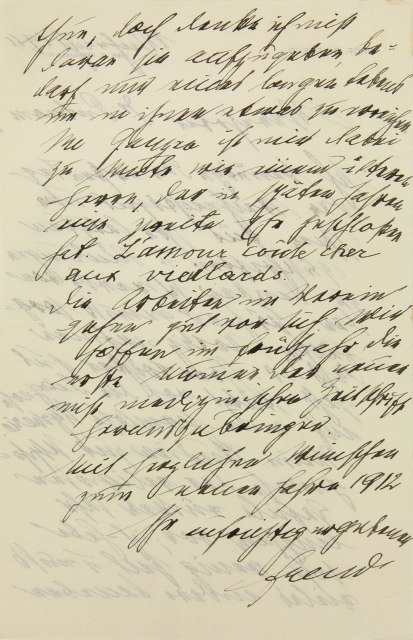 thun, doch denke ich nicht
daran sie aufzugeben, be-
darf nur eines langen Lebens
um in ihnen etwas zu
Im Ganzen ist mir dabei
zu Muthe wie einem älteren
Herrn, der in späten Jahren
eine zweite Ehe geschlossen
hat. L'amour coute cher
aux viellards.
Die Arbeiten im Verein
gehen gut vor sich. Wir
hoffen im Frühjahr die
erste Numer der neuen
nicht medizinischen Zeitschrift
herauszubringen.
Mit herzlichen Wünschen
zum neuen Jahre 1912
Ihr aufrichtig ergebener
Freud